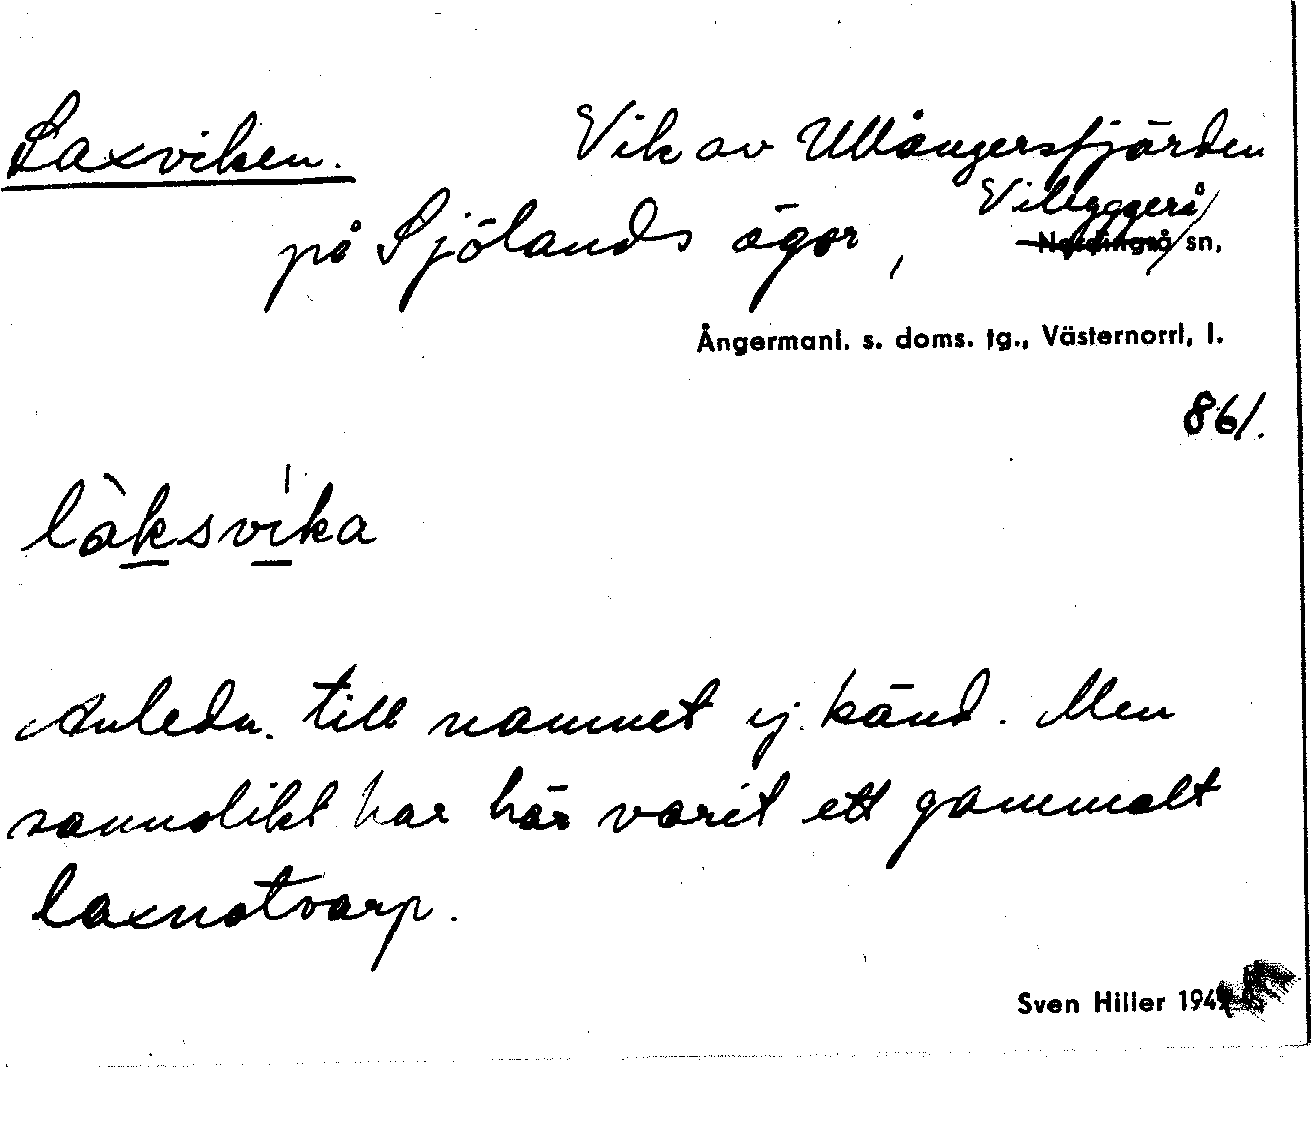 Laxviken. Vik av Ullångersfjärden
på Sjölands ägor, Vibyggerå sn,
Ångermanl. s. doms. tg., Västernorrl, l.
861.
làksvíka
Anledn. till namnet ej känd. Men
sannolikt har här varit ett gammalt
laxnotvarp.
Sven Hiller 194